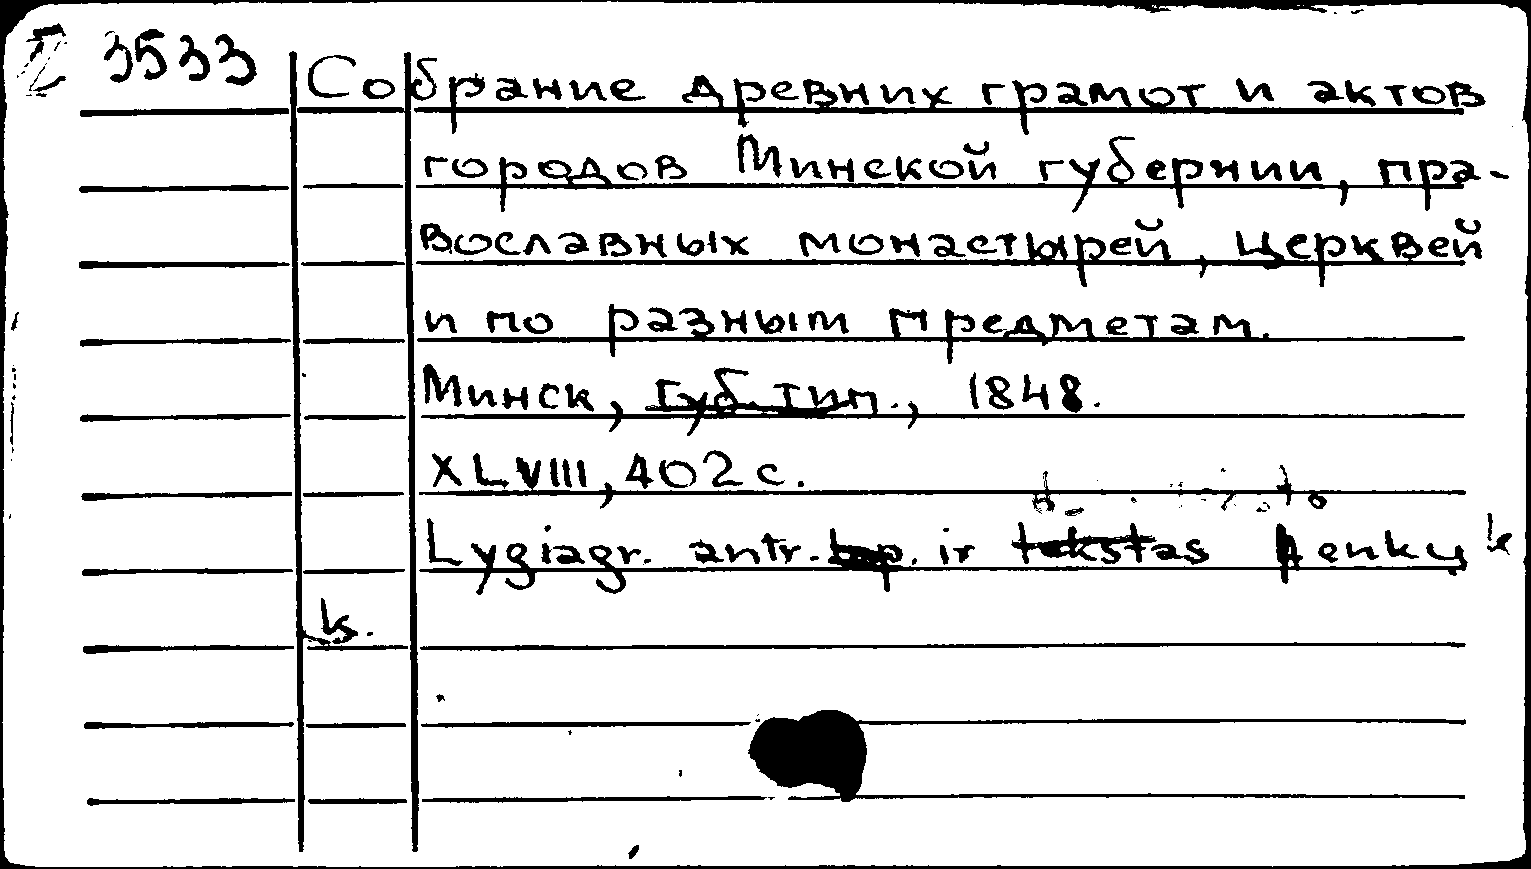 3533
Собрание древних грамот и актов
городов Минской губернии, пра-
вославных монастырей, церквей
и по разным предметам.
Минск, Губ. тип., 1848.
XLVIII, 402 с.
Lygiagr. antr. lap. ir tekstas lenkų k
k.